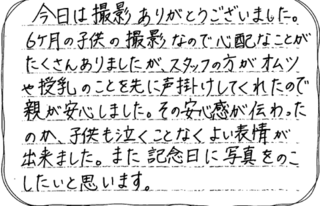 今日は撮影ありがとうございました。
6ケ月の子供の撮影なので心配なことが
たくさんありましたが、スタッフの方がオムツ
や授乳のことを先に声掛けしてくれたので
親が安心しました。その安心感が伝わった
のか、子供も泣くことなくよい表情が
出来ました。また記念日に写真をのこ
したいと思います。